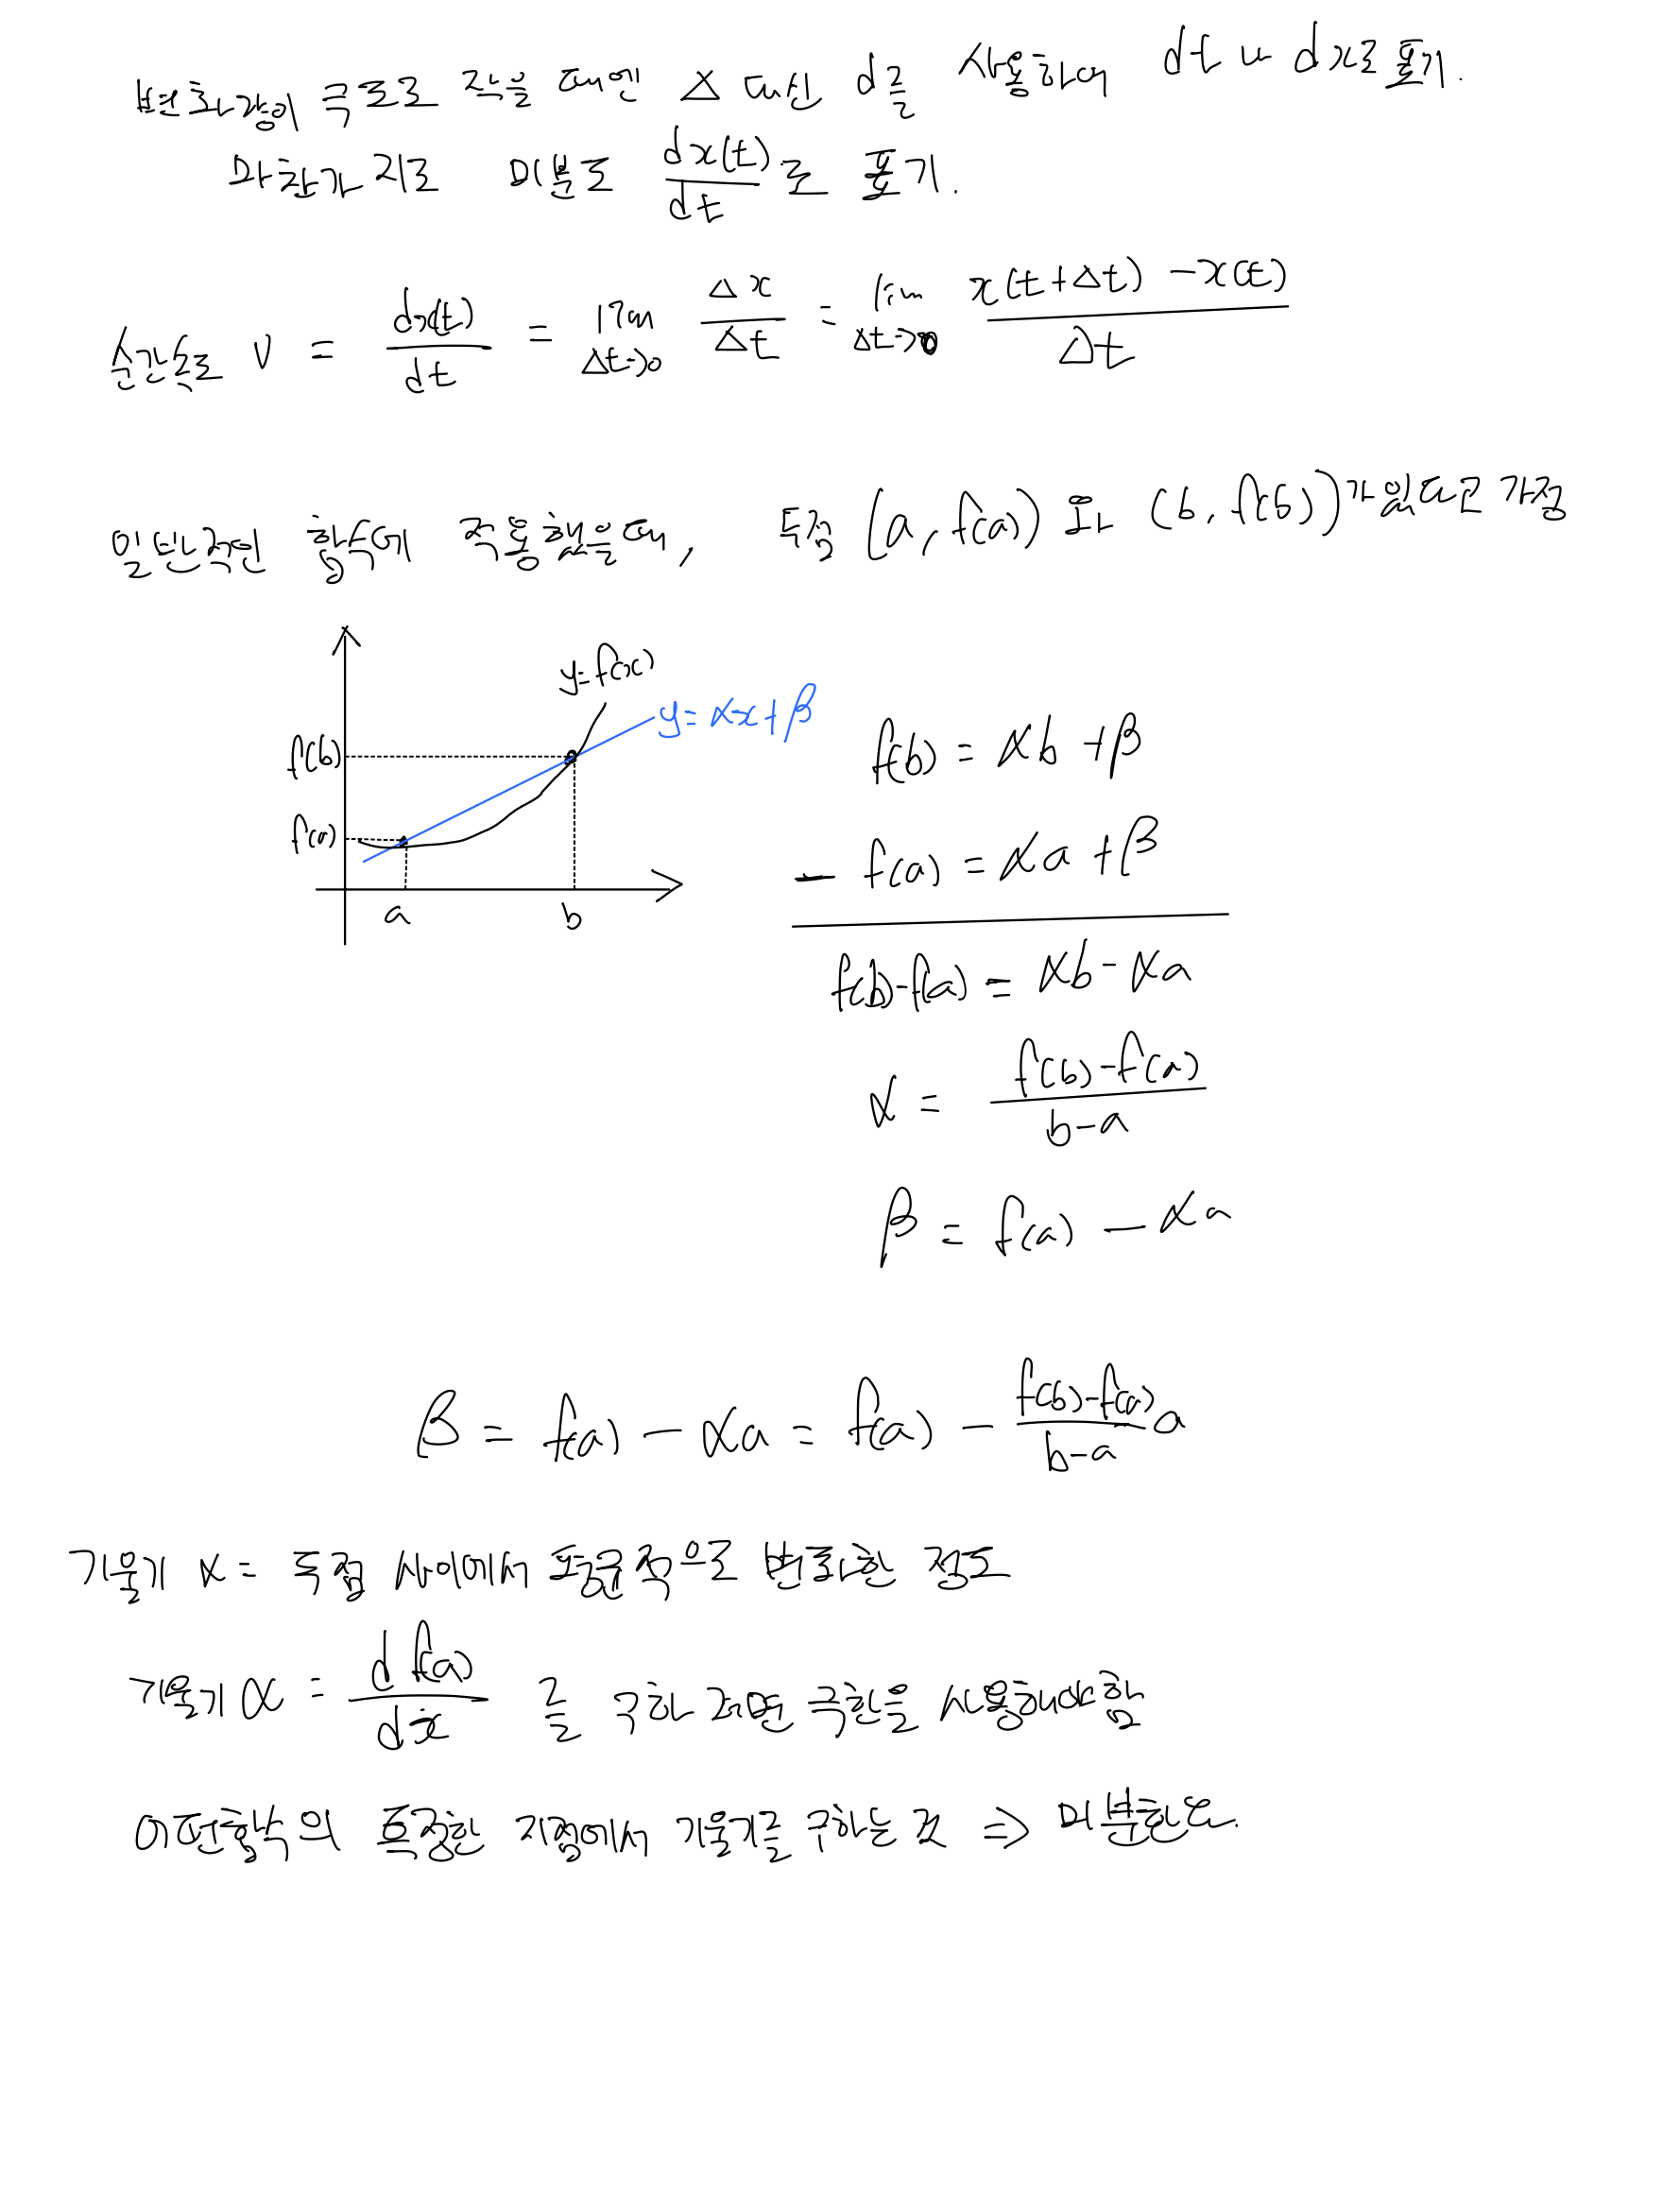 변화량이 극도로 작을 때엔 Δ 대신 d를 사용하여 dt나 dx로 표기.
마찬가지로 미분도 dx(t)/dt로 표기.
순간속도 v = dx(t)/dt = lim Δt→0 Δx/Δt = lim Δt→0 (x(t+Δt) - x(t))/Δt
일반적인 함수에 적용했을때, 두점 (a, f(a)) 와 (b, f(b))가 있다고 가정
y=f(x)
y=αx+β
f(b)
f(a)
a b
f(b) = αb + β
- f(a) = αa + β
f(b)-f(a) = αb - αa
α = (f(b)-f(a))/(b-a)
β = f(a) - αa
β = f(a) - αa = f(a) - (f(b)-f(a))/(b-a) a
기울기 α = 두점 사이에서 평균적으로 변화한 정도
기울기 α = d f(a)/dx 를 구하려면 극한을 사용해야함
어떤함수의 특정한 지점에서 기울기를 구하는 것 ⇒ 미분한다.